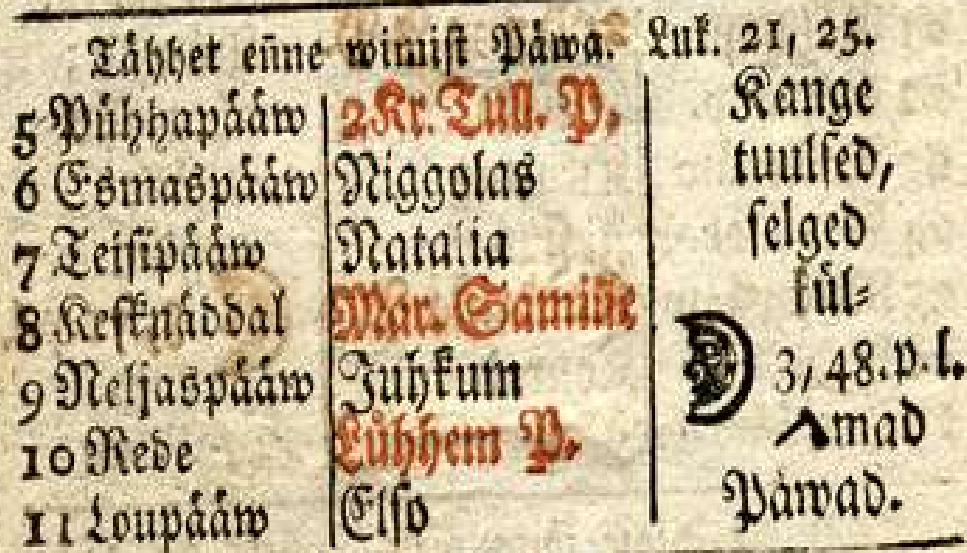 Tähhet eñne wimist Päwa. Luk. 21, 25.
5 Pühhapääw 2 Kr. Tull. P. Kange
6 Esmaspääw Niggolas tuulsed,
7 Teisipääw Natalia selged
8 Keskn̄äddal Mar. Samiſse kül-
9 Neljaspääw Juhkum 3, 48. p. l.
10 Rede Lühhem P. Amad
11 Loupääw Elso Päwad.